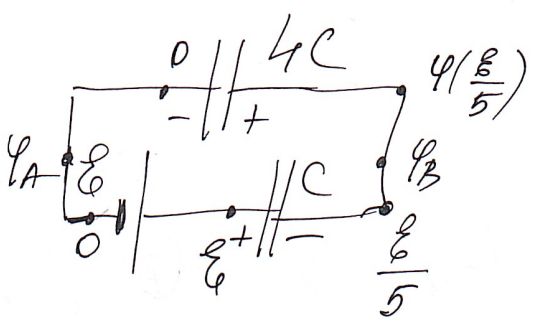 0 4C φ(ℰ/5)
- +
φA ℰ C φB
0 ℰ + - ℰ/5